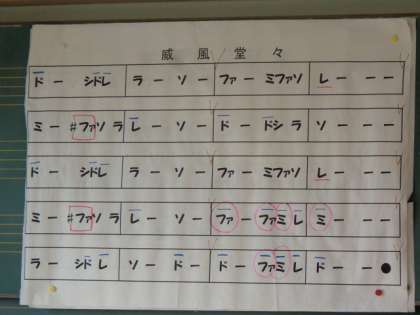 威風堂々
ドー シドレ ラー ソー ファー ミファソ レー ーー
ミー #ファソラ レー ソー ドー ドシラ ソー ーー
ドー シドレ ラー ソー ファー ミファソ レー ーー
ミー #ファソラ レー ソー ファー ファミレ ミー ーー
ラー シドレ ソー ドー ドー ファミレ ドー ー